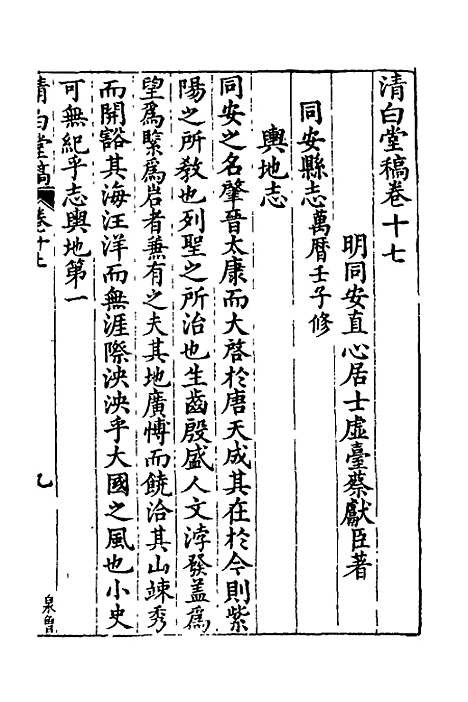 清白堂稿卷十七
明同安直心居士虛臺蔡獻臣著
同安縣志萬曆壬子修
輿地志
同安之名肇晉太康而大啓於唐天成其在於今則紫
陽之所教也列聖之所治也生齒殷盛人文浡發盖爲
望爲緊爲岩者兼有之夫其地廣愽而饒洽其山竦秀
而開豁其海汪洋而無涯際泱泱乎大國之風也小史
可無紀乎志輿地第一
清白堂稿 卷十七
九
泉魯